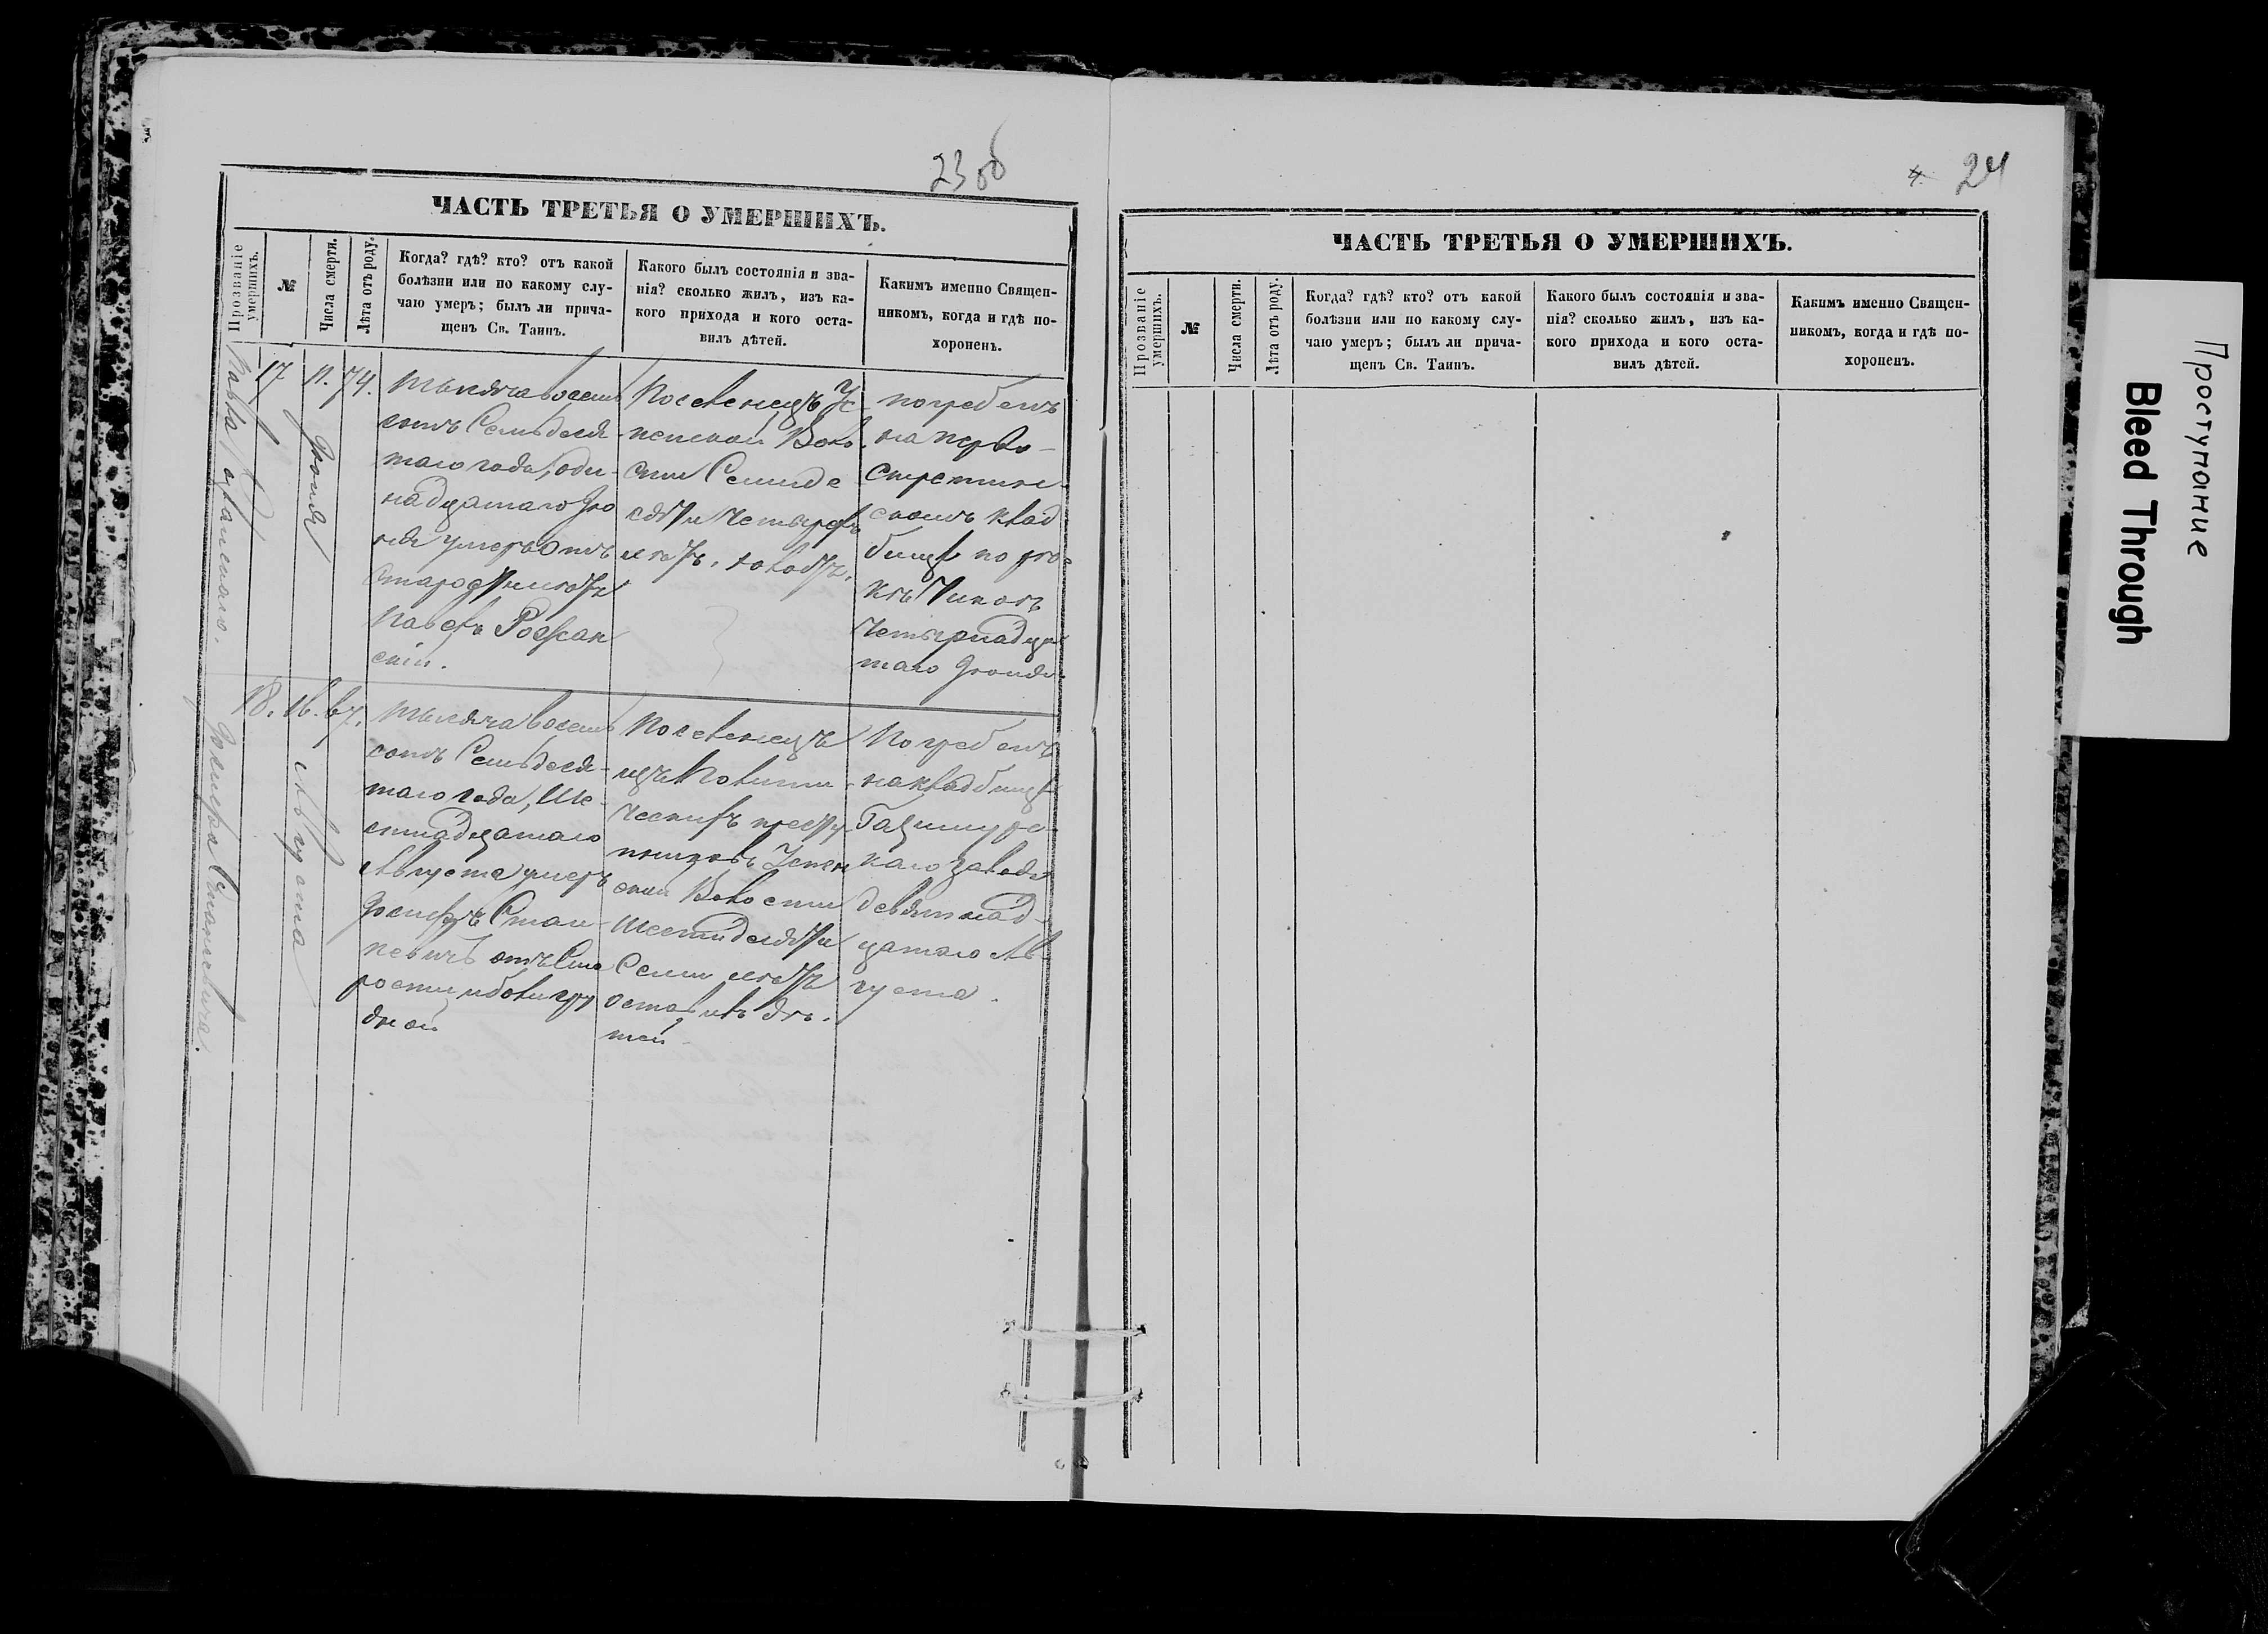 23 об
ЧАСТЬ ТРЕТЬЯ О УМЕРШИХЪ.
Прозваніе умершихъ.
№
Числа смерти.
Лѣта отъ роду.
Когда? гдѣ? кто? отъ какой
болѣзни или по какому слу-
чаю умеръ; былъ ли прича-
щенъ Св. Таинъ.
Какого былъ состоянія и зва-
нія? сколько жилъ, изъ ка-
кого прихода и кого оста-
вилъ дѣтей.
Какимъ именно Священ-
никомъ, когда и гдѣ по-
хороненъ.
Павла
17
11.
Іюня
74.
Тысяча восем
сотъ Семьдеся-
таго года, оди-
надцатаго Ію
ня умеръ отъ
Старости лѣтъ
Павелъ Рожан
скій.
Поселенецъ Ус-
пенской Воло-
сти Семиде
сяти четырехъ
лѣтъ, холостъ.
погребенъ
на
Стретин-
скомъ клад
бищѣ по
Четырнадца
таго Іюня
18.
16.
Августа
67.
Іосифа Станкевича.
Тысяча восем
сотъ Семьдеся-
таго года, Ше-
стнадцатаго
Августа умеръ
Іосифъ Стан-
кевичъ отъ Ста
рости и боли гру
дной
Поселенецъ
изъ Полити-
ческихъ престу
пниковъ Успен
ской Волости
Шестидесяти
Семи лѣтъ
оставивъ дѣ-
тей
Погребенъ
на кладбищѣ
Газимурс-
каго завода
девятнад-
цатаго Ав
густа.
24
ЧАСТЬ ТРЕТЬЯ О УМЕРШИХЪ.
Прозваніе умершихъ.
№
Числа смерти.
Лѣта отъ роду.
Когда? гдѣ? кто? отъ какой
болѣзни или по какому слу-
чаю умеръ; былъ ли прича-
щенъ Св. Таинъ.
Какого былъ состоянія и зва-
нія? сколько жилъ, изъ ка-
кого прихода и кого оста-
вилъ дѣтей.
Какимъ именно Священ-
никомъ, когда и гдѣ по-
хороненъ.
Проступание
Bleed Through